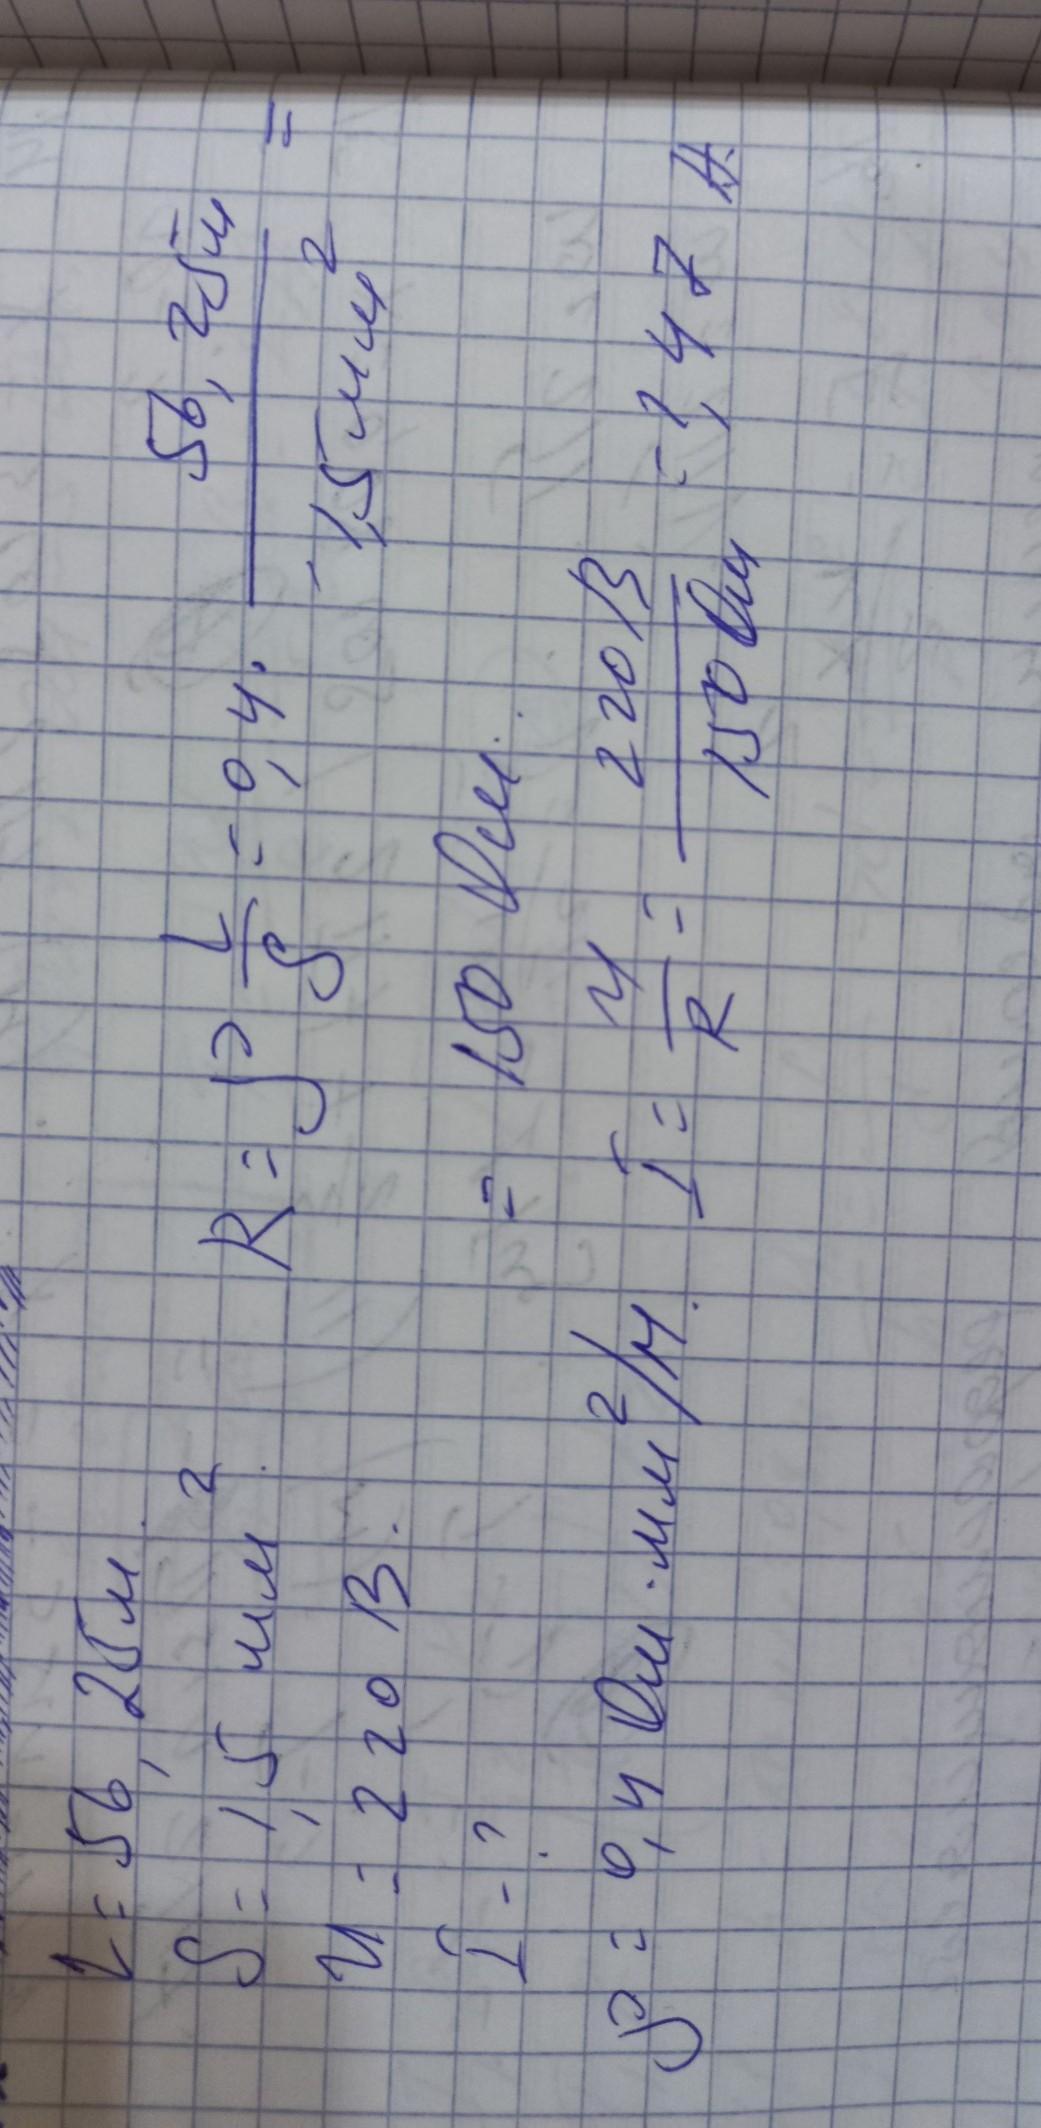 L = 56,25м.
S = 1,5 мм².
U = 220 В.
I - ?
ρ = 0,4 Ом·мм²/м.
R = ρ L/S = 0,4 · 56,25м / 1,5мм² =
= 150 Ом.
I = U/R = 220В / 150 Ом = 1,47 А.